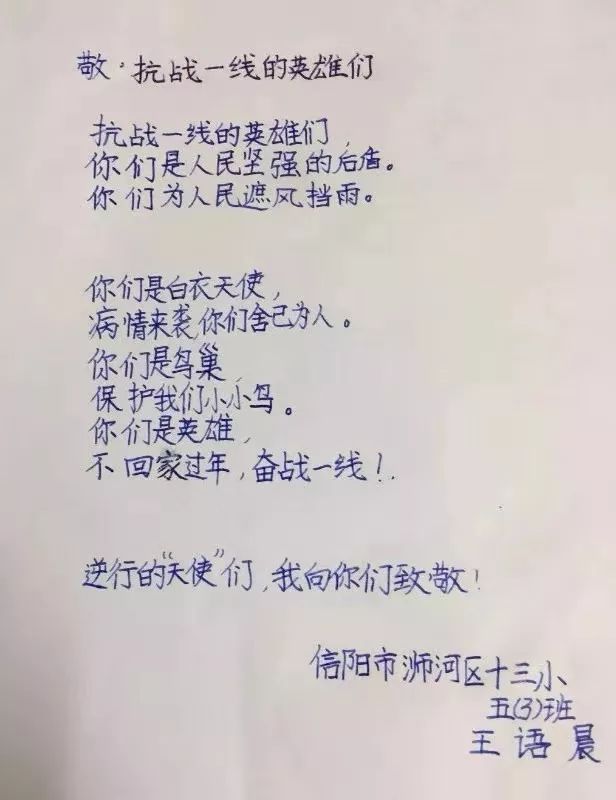 敬·抗战一线的英雄们
抗战一线的英雄们,
你们是人民坚强的后盾。
你们为人民遮风挡雨。
你们是白衣天使,
病情来袭,你们舍己为人。
你们是鸟巢,
保护我们小小鸟。
你们是英雄,
不回家过年,奋战一线!
逆行的“天使”们,我向你们致敬!
信阳市浉河区十三小
五(3)班
王语晨